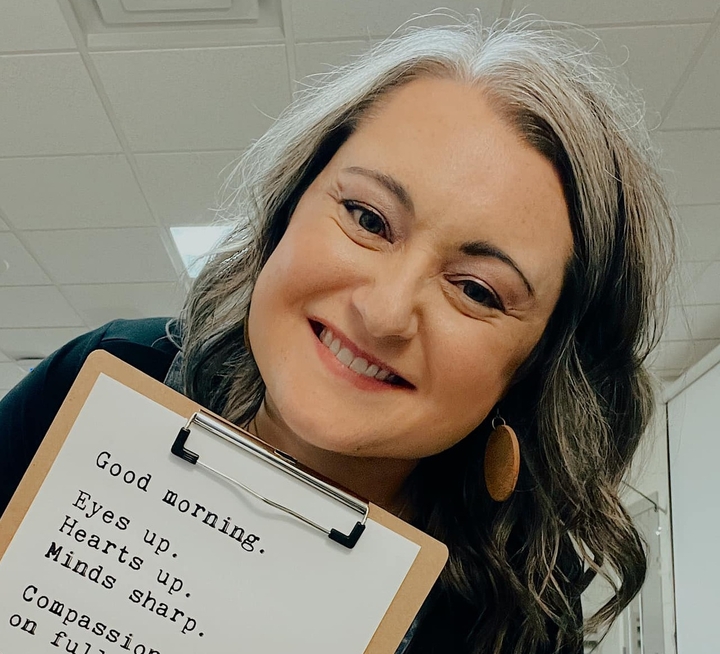 Good morning.
Eyes up.
Hearts up.
Minds sharp.
Compassion
on full